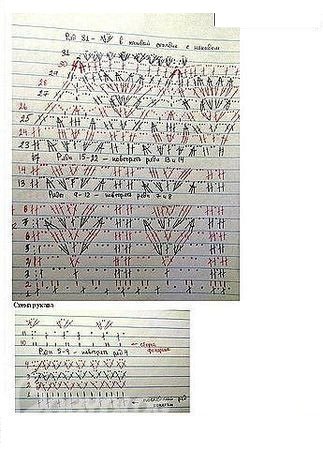 Ряд 31 - в каждый столбик с накидом
31
30
29
28
27
26
25
24
23
Ряды 15-22 - повторять ряды 13 и 14
14
13
Ряды 9-12 - повторять ряды 7 и 8
8
7
6
5
4
3
2
1
Схема рукава
11
10
Ряды 5-9 - повторять ряд 4
4
3
2
1